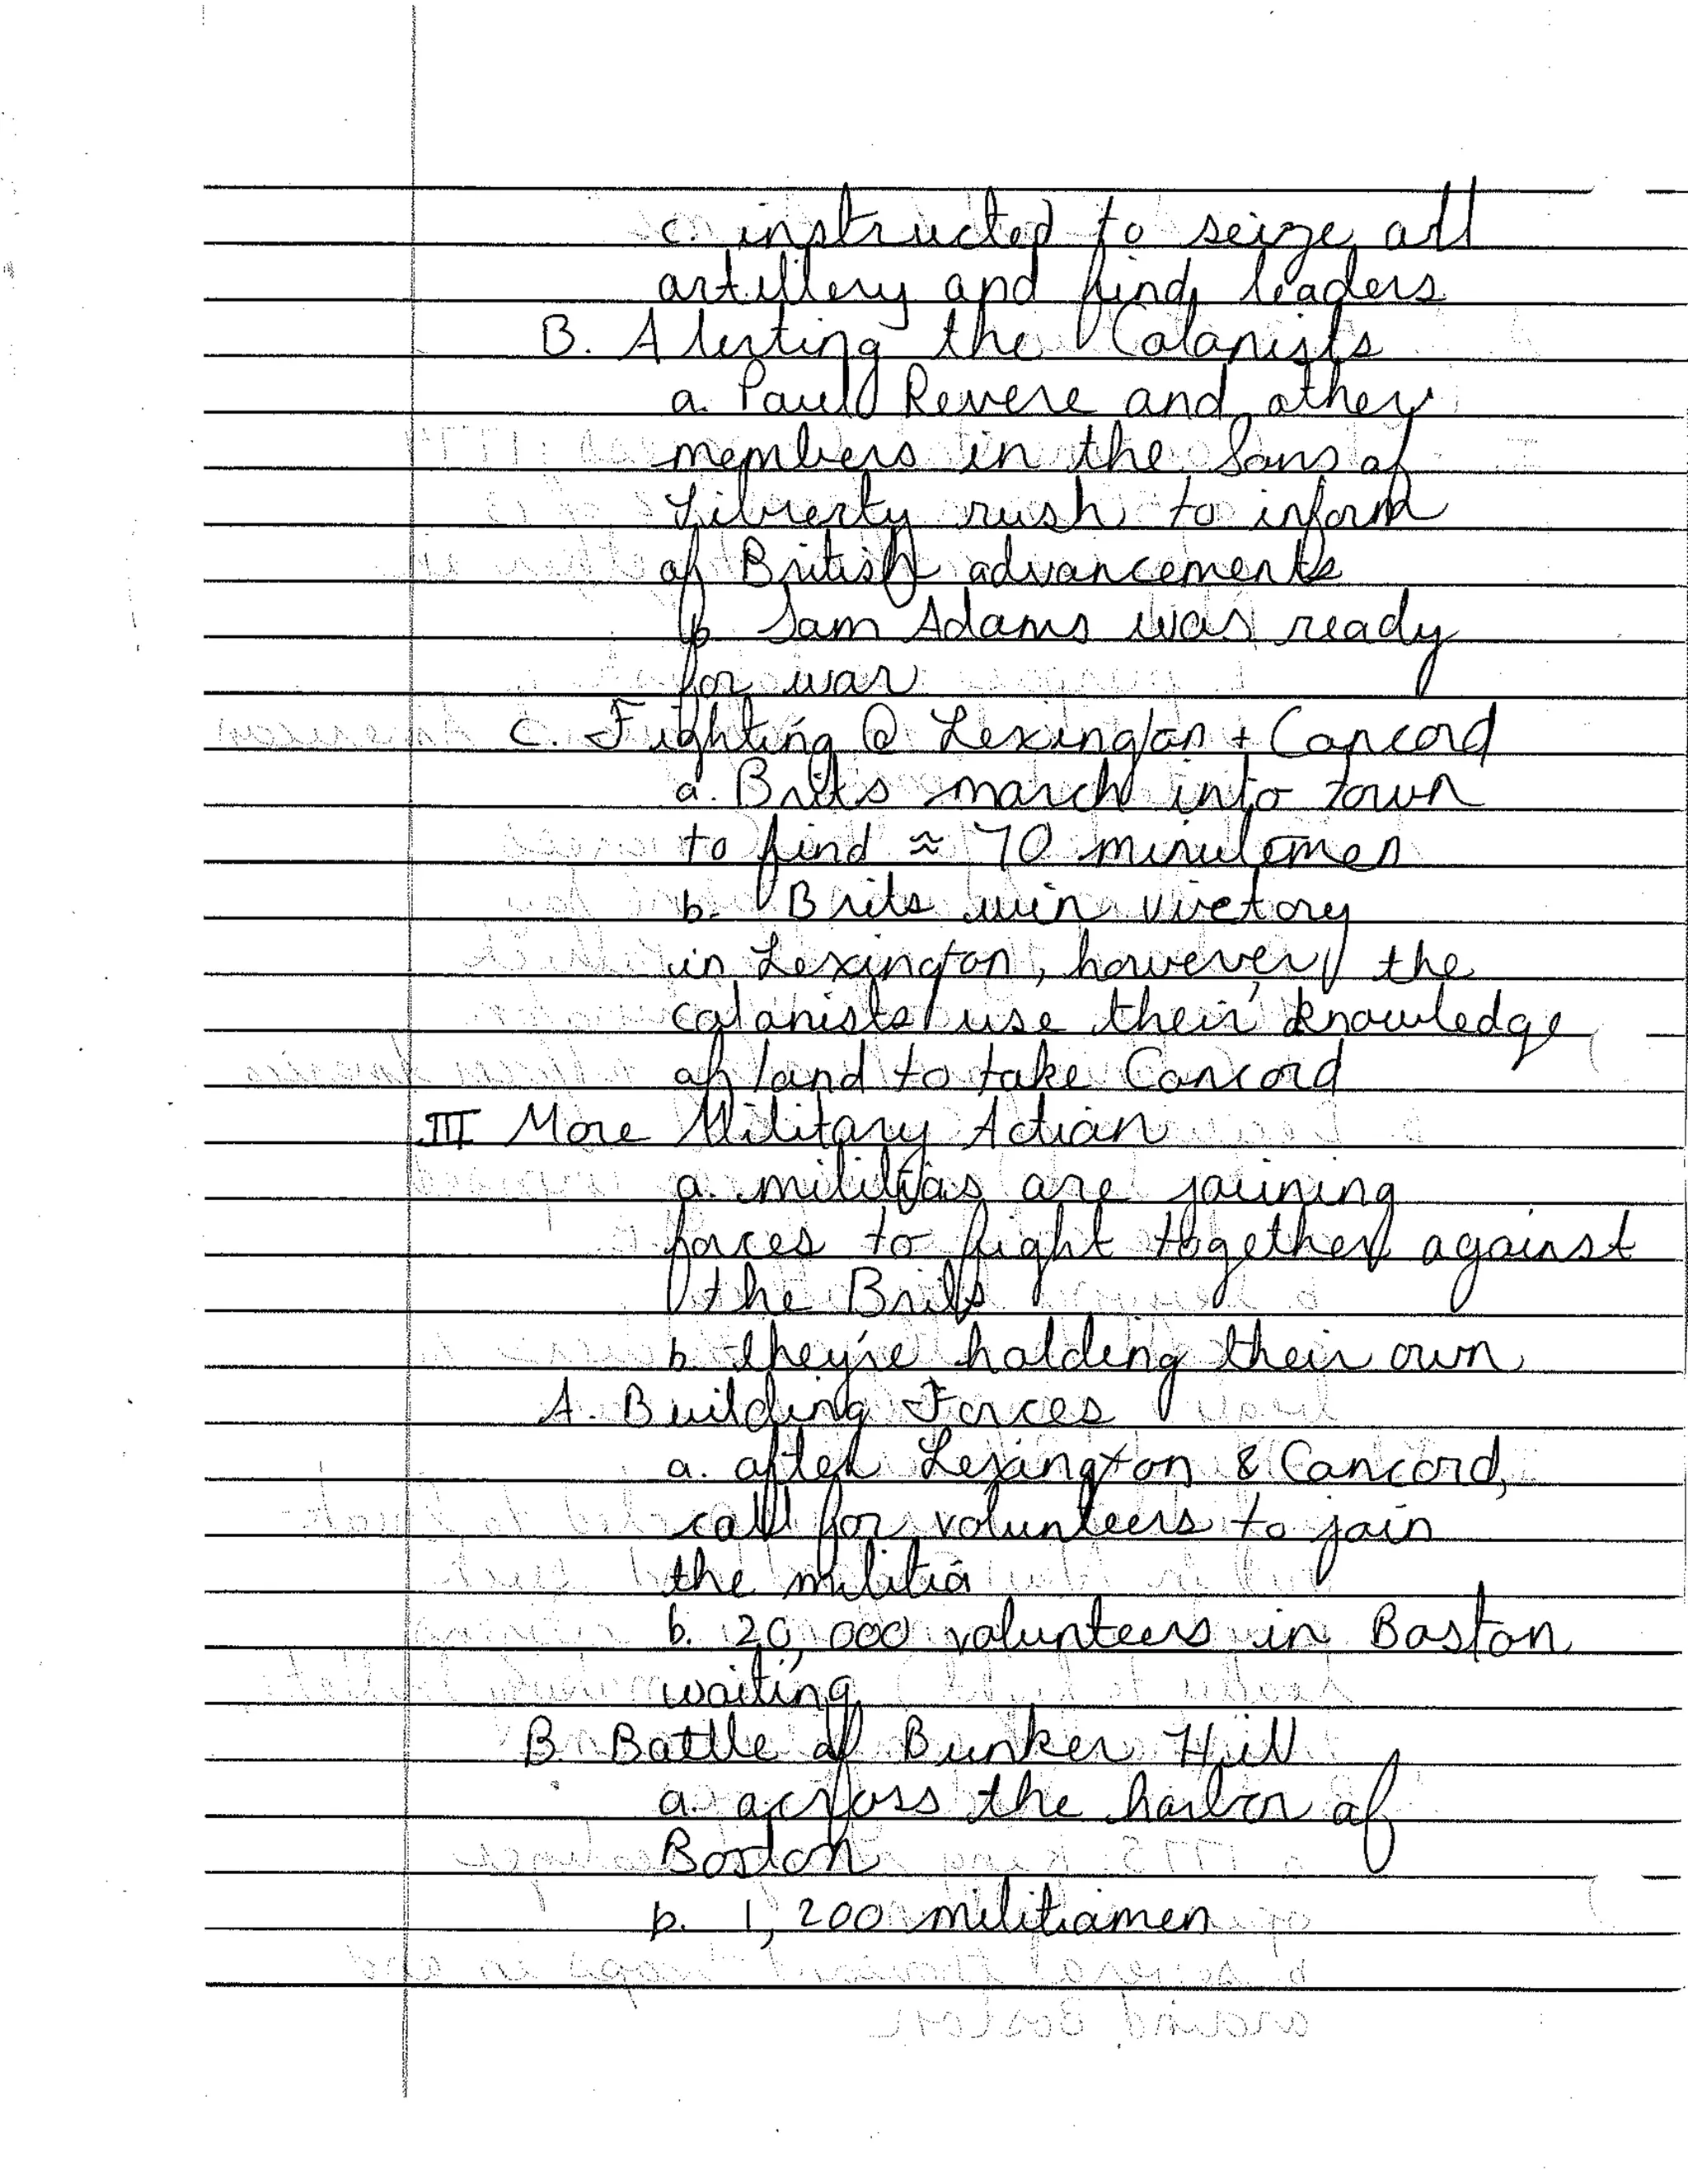 c. instructed to seize all
artillery and find leaders
B. Alerting the Colonists
a. Paul Revere and other
members in the Sons of
Liberty rush to inform
of British advancements
b. Sam Adams was ready
for war
C. Fighting @ Lexington + Concord
a. Brits march into town
to find ≈ 70 minutemen
b. Brits win victory
in Lexington, however, the
colonists use their knowledge
of land to take Concord
III More Military Action
a. militias are joining
forces to fight together against
the Brits
b. they're holding their own
A. Building Forces
a. after Lexington & Concord,
call for volunteers to join
the militia
b. 20,000 volunteers in Boston
waiting
B. Battle of Bunker Hill
a. across the harbor of
Boston
b. 1,200 militiamen